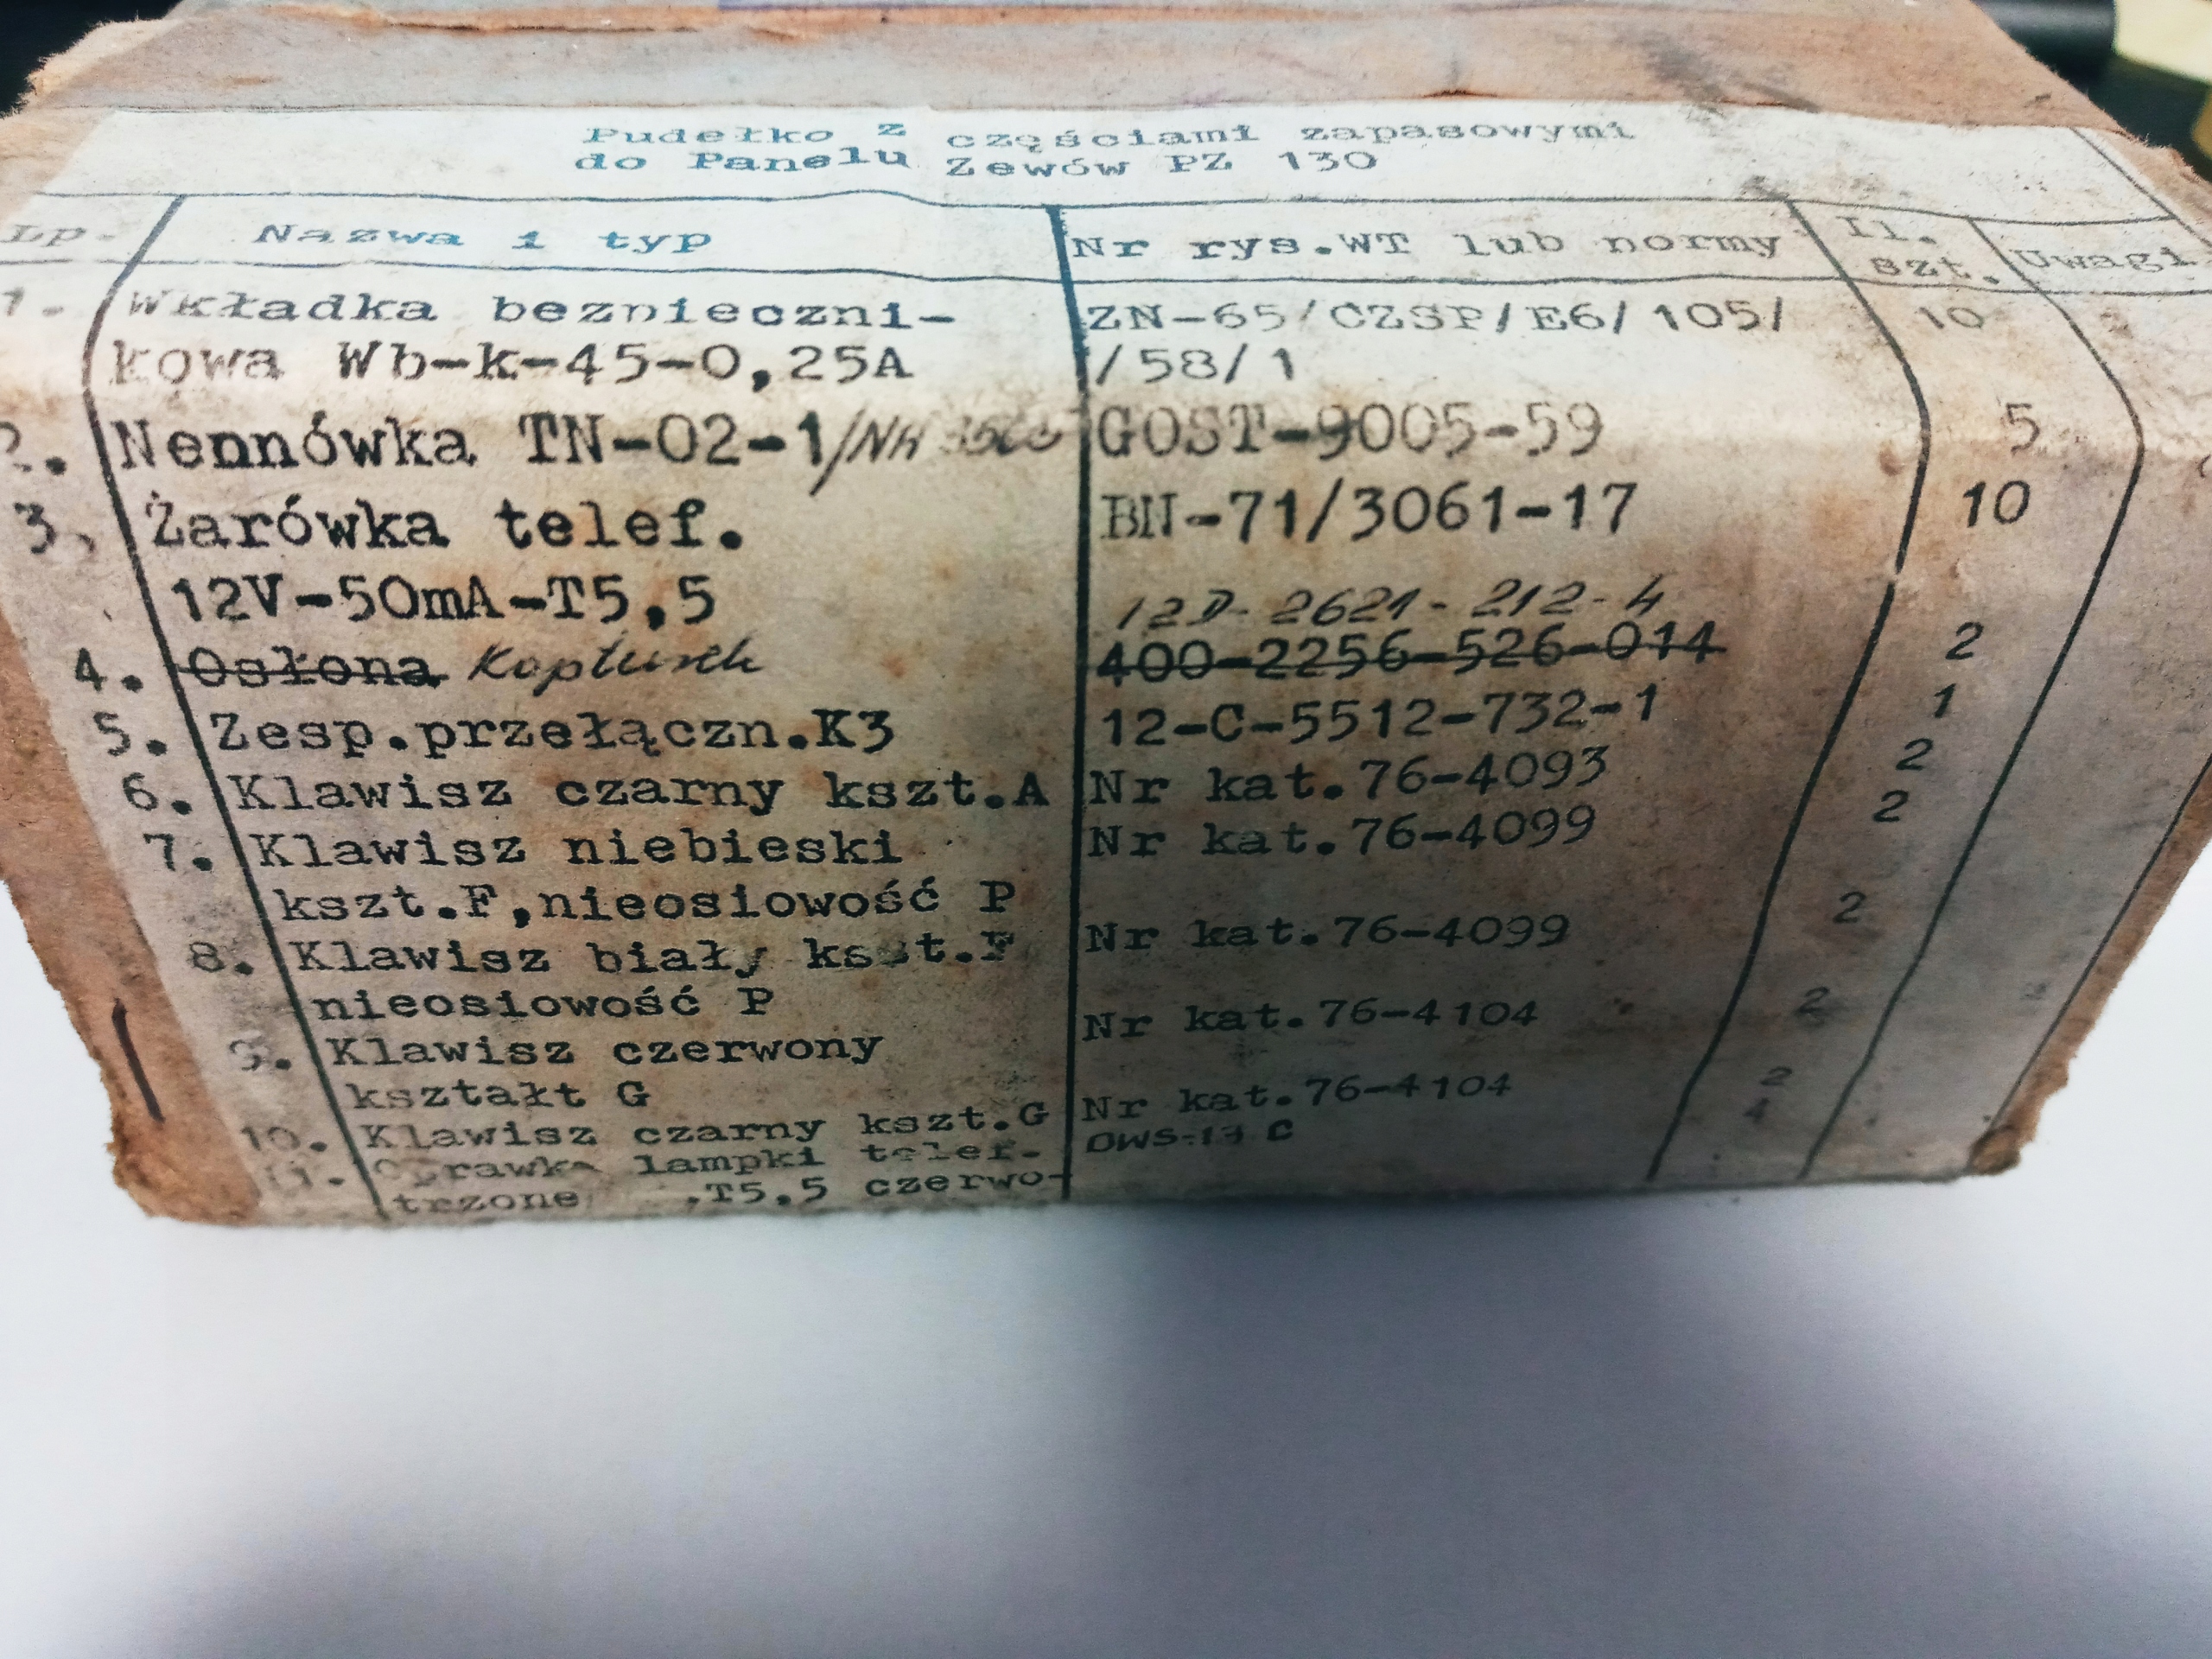 Pudełko z częściami zapasowymi
do Panelu Zewów PZ 130
Lp. Nazwa i typ Nr rys.WT lub normy Il. szt. Uwagi
1. Wkładka bezpieczni- ZN-65/CZSP/E6/105/ 10
kowa Wb-k-45-0,25A /58/1
2. Nennówka TN-02-1/NH GOST-9005-59 5
3. Żarówka telef. BN-71/3061-17 10
12V-50mA-T5,5 12D-2621-212-4
4. Osłona Kapturek 400-2256-526-014 2
5. Zesp.przełączn.K3 12-C-5512-732-1 1
6. Klawisz czarny kszt.A Nr kat.76-4093 2
7. Klawisz niebieski Nr kat.76-4099 2
kszt.F,nieosiowość P
8. Klawisz biały kszt.F Nr kat.76-4099 2
nieosiowość P
9. Klawisz czerwony Nr kat.76-4104 2
kształt G
10. Klawisz czarny kszt.G Nr kat.76-4104 2
11. Oprawka lampki telef. OWS-13 C 4
trzone .T5,5 czerwo-